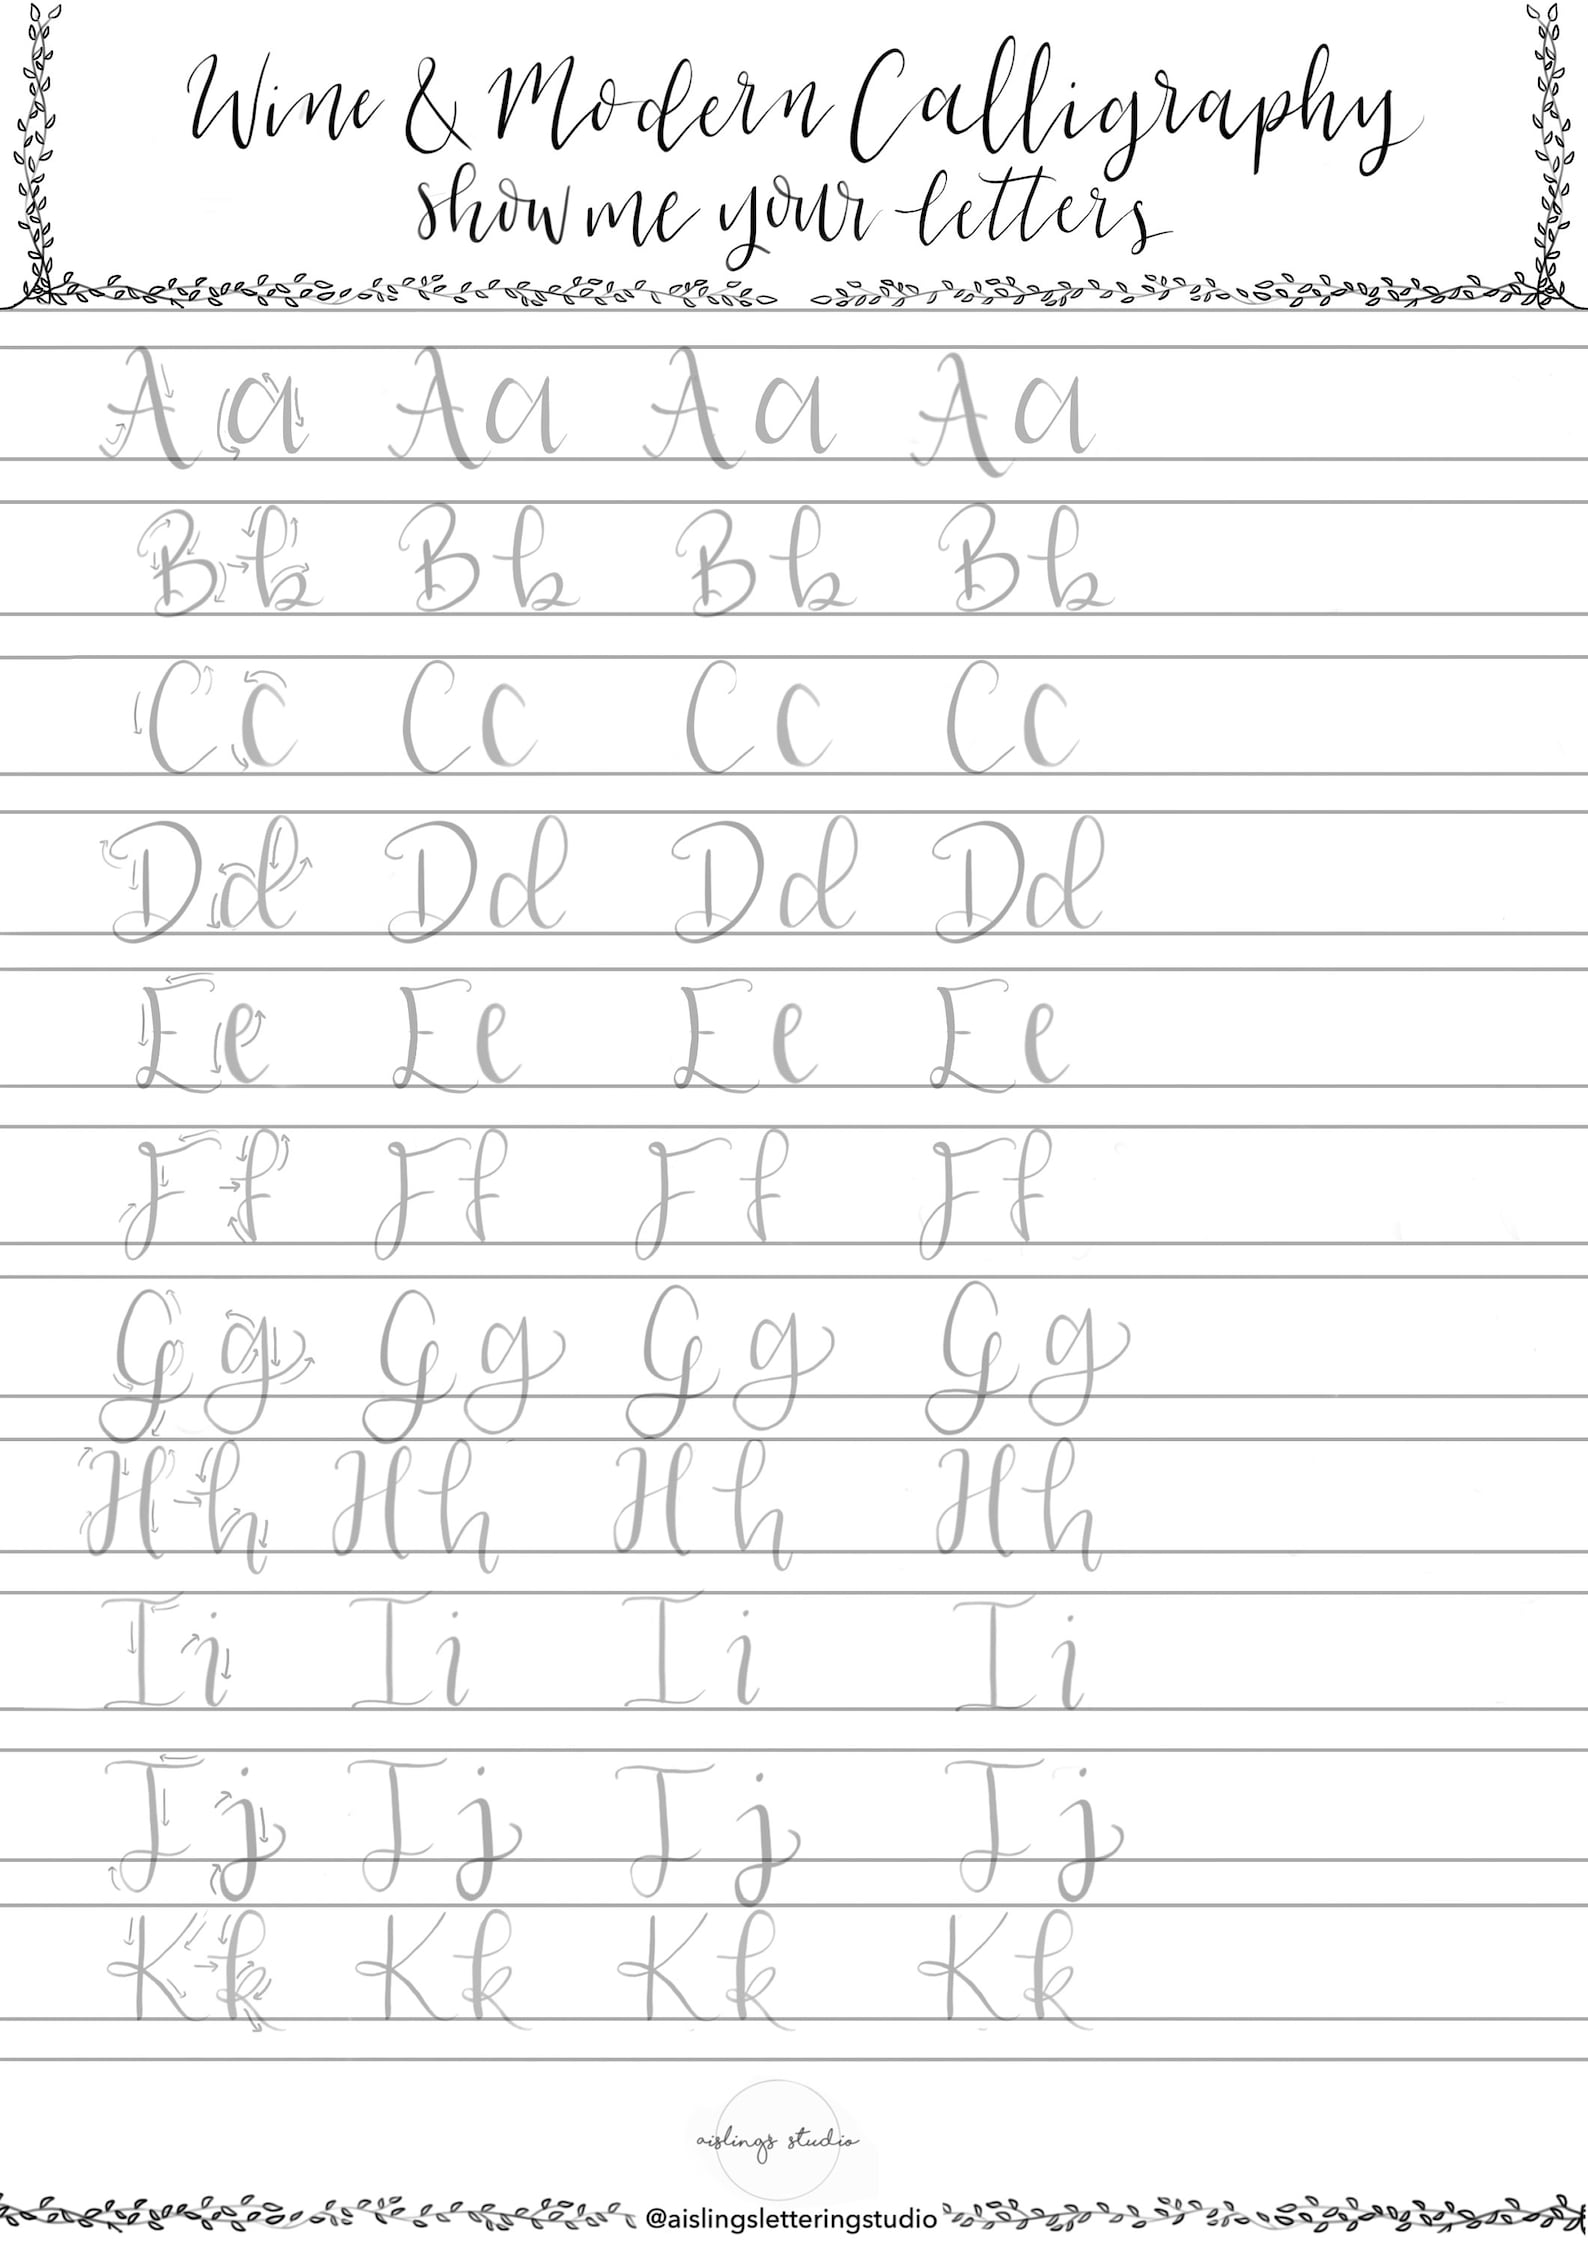 Wine & Modern Calligraphy
show me your letters
A a A a A a A a
B b B b B b B b
C c C c C c C c
D d D d D d D d
E e E e E e E e
F f F f F f F f
G g G g G g G g
H h H h H h H h
I i I i I i I i
J j J j J j J j
K k K k K k K k
aislings studio
@aislingsletteringstudio